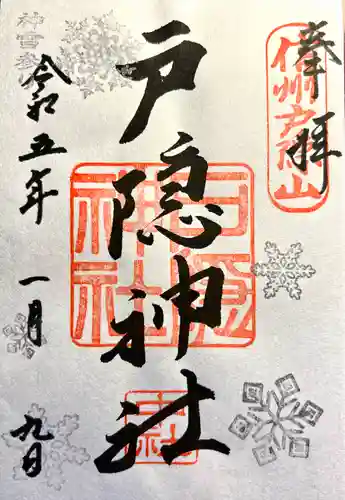 奉拝
信州戸隠山
戸隠神社
戸隠神社
令和五年一月九日